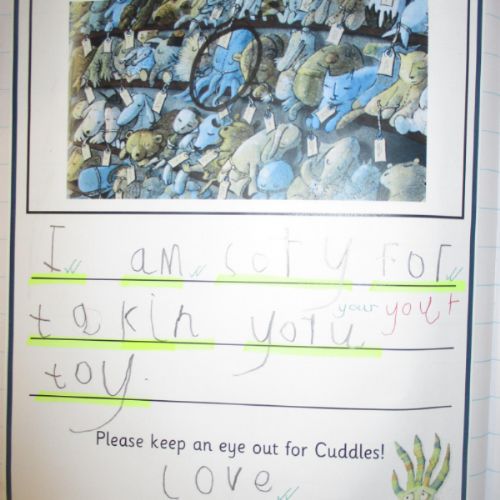 I am sory for
takin yoru your your
toy.
Please keep an eye out for Cuddles!
Love